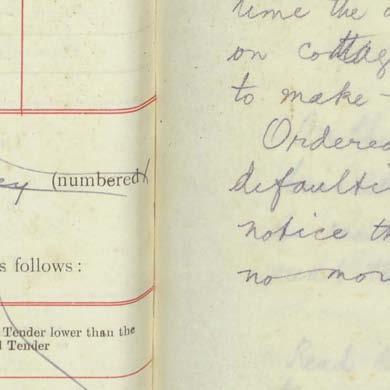 (numbered
s follows :
Tender lower than the
Tender
time the
on cottag
to make
Ordered
defaulti
notice th
no mor